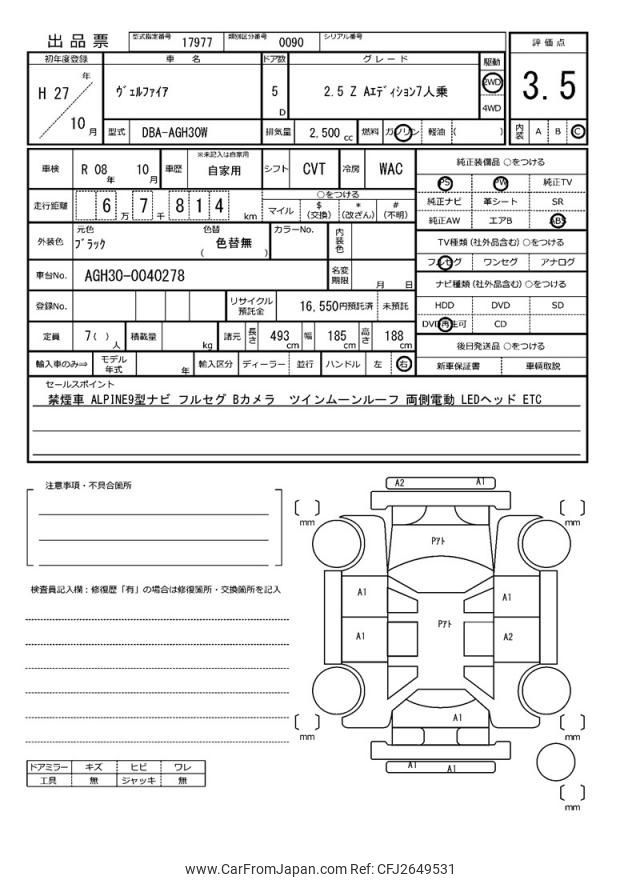 出品票 型式指定番号 17977 類別区分番号 0090 シリアル番号
初年度登録 車 名 ドア数 グレード 駆動 評価点
H 27 年 10 月 ヴェルファイア 5 D 2.5 Z Aエディション7人乗 2WD 4WD 3.5
型式 DBA-AGH30W 排気量 2,500 cc 燃料 ガソリン 軽油 ( ) 内装 A B C
車検 R 08 年 10 月 車歴 ※未記入は自家用 自家用 シフト CVT 冷房 WAC
純正装備品 ○をつける
PS PW 純正TV
走行距離 6 万 7 千 8 1 4 km ○をつける
マイル $ (交換) * (改ざん) # (不明)
純正ナビ 革シート SR
純正AW エアB ABS
外装色 元色 ブラック 色替 ( 色替無 ) カラーNo. 内装色
TV種類 (社外品含む) ○をつける
フルセグ ワンセグ アナログ
車台No. AGH30-0040278 名変期限 月 日
ナビ種類 (社外品含む) ○をつける
登録No. リサイクル預託金 16,550円預託済 未預託
HDD DVD SD
DVD再生可 CD
定員 7 ( ) 人 積載量 kg 諸元 長さ 493 cm 幅 185 cm 高さ 188 cm
後日発送品 ○をつける
輸入車のみ⇒ モデル年式 年 輸入区分 ディーラー 並行 ハンドル 左 右
新車保証書 車輌取説
セールスポイント
禁煙車 ALPINE9型ナビ フルセグ Bカメラ ツインムーンルーフ 両側電動 LEDヘッド ETC
注意事項・不具合箇所
検査員記入欄:修復歴「有」の場合は修復箇所・交換箇所を記入
A2 A1
mm mm
Pアト
A1 A1
Pアト
A1 A2
A1
mm mm
A1 A1
mm
ドアミラー キズ ヒビ ワレ
工具 無 ジャッキ 無
www.CarFromJapan.com Ref: CFJ2649531